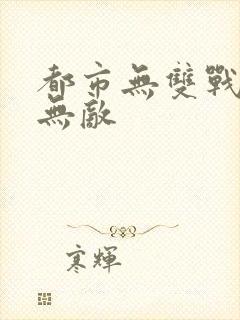 都市無雙戰
無敵
寒輝